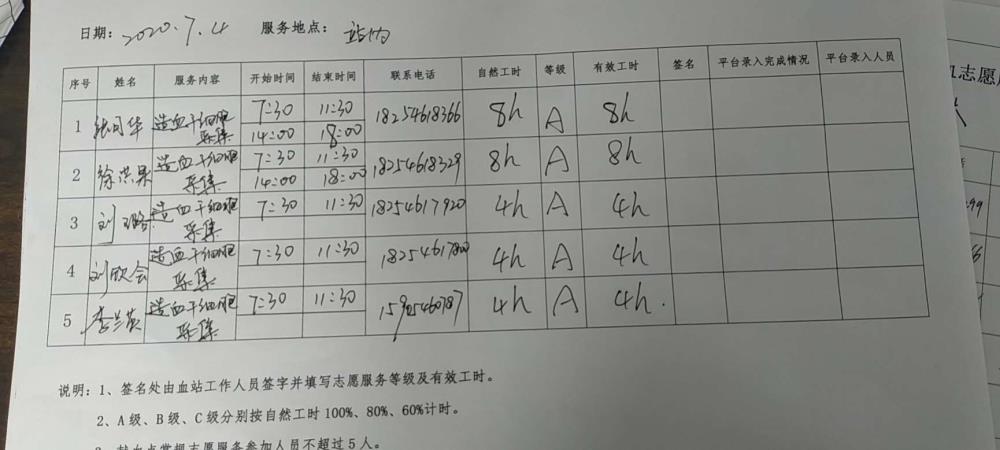 日期: 2020.7.4 服务地点: 站内
序号 姓名 服务内容 开始时间 结束时间 联系电话 自然工时 等级 有效工时 签名 平台录入完成情况 平台录入人员
1 张同华 造血干细胞采集 7:30 11:30 18254618366 8h A 8h
14:00 18:00
2 徐洪果 造血干细胞采集 7:30 11:30 18254618329 8h A 8h
14:00 18:00
3 刘璐 造血干细胞采集 7:30 11:30 18254617920 4h A 4h
4 刘欣会 造血干细胞采集 7:30 11:30 4h A 4h
5 李兰英 造血干细胞采集 7:30 11:30 15905460787 4h A 4h.
说明: 1、签名处由血站工作人员签字并填写志愿服务等级及有效工时。
2、A级、B级、C级分别按自然工时 100%、80%、60%计时。
志愿服务参加人员不超过5人。
志愿